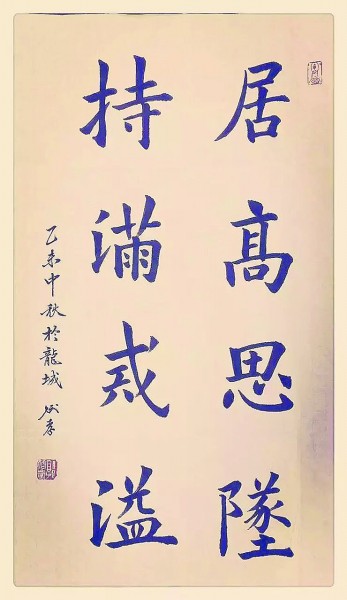 居高思墜
持滿戒溢
乙未中秋於龍城